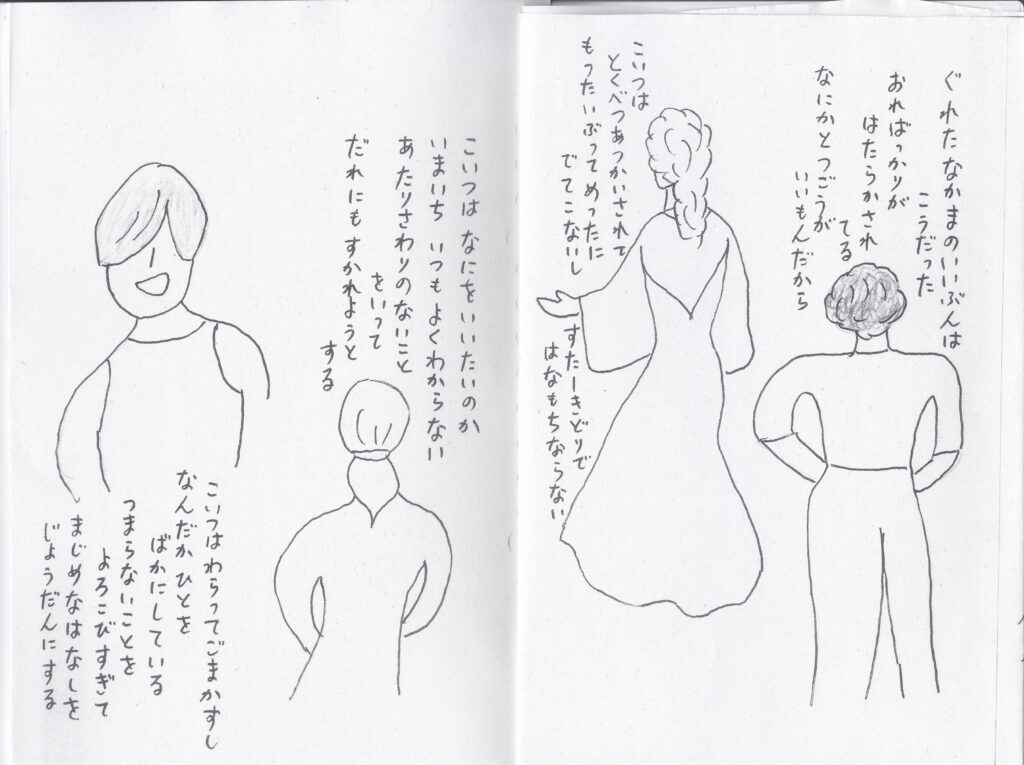 ぐれたなかまのいいぶんは
こうだった
おればっかりが
はたらかされ
てる
なにかとつごうが
いいもんだから
こいつは
とくべつあつかいされて
もったいぶってめったに
でてこないし
すたーきどりで
はなもちならない
こいつは なにをいいたいのか
いまいち いつもよくわからない
あたりさわりのないこと
をいって
だれにも すかれようと
する
こいつはわらってごまかすし
なんだかひとを
ばかにしている
つまらないことを
よろこびすぎて
まじめなはなしを
じょうだんにする